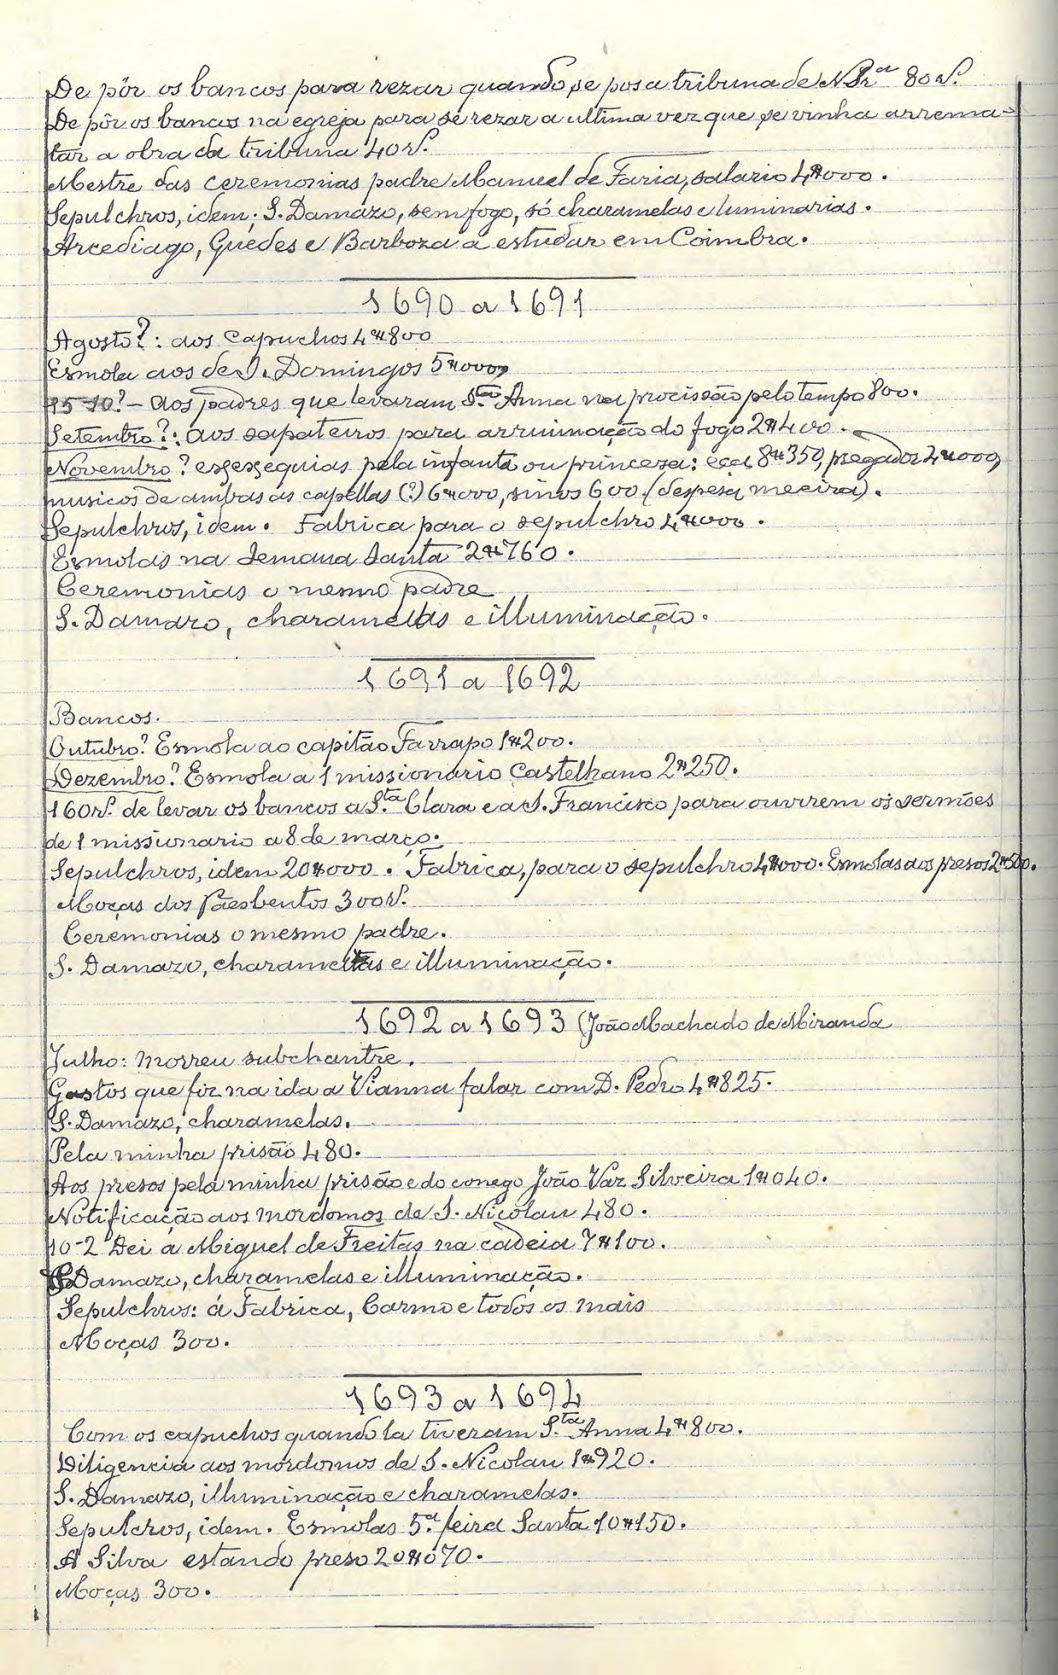 De pôr os bancos para rezar quando se pos a tribuna de N. Sr.ª 80 rs.
De pôr os bancos na egreja para se rezar a ultima vez que se vinha arrema-
tar a obra da tribuna 40 rs.
Mestre das ceremonias padre Manuel de Faria, salario 4$000.
Sepulchros, idem; S. Damazo, sem fogo, só charamelas e luminarias.
Arcediago, Guedes e Barboza a estudar em Coimbra.
1690 a 1691
Agosto?: aos Capuchos 4$800
Esmola aos de S. Domingos 5$000,
15-10?- Aos padres que levaram S.ta Anna na procissão pelo tempo 800.
Setembro?: aos sapateiros para arruinação do fogo 2$400.
Novembro? exsequias pela infanta ou princeza: eça 8$350, pregador 4$000,
musicos de ambas as capellas (?) 6$000, sinos 600 (despesa meeira).
Sepulchros, idem. Fabrica para o sepulchro 4$000.
Esmolas na Semana Santa 2$760.
Ceremonias o mesmo padre
S. Damazo, charamelas e illuminação.
1691 a 1692
Bancos.
Outubro? Esmola ao capitão Farrapo 1$200.
Dezembro? Esmola a 1 missionario Castelhano 2$250.
160 rs. de levar os bancos a S.ta Clara e a S. Francisco para ouvirem os sermões
de 1 missionario a 8 de março.
Sepulchros, idem 20$000. Fabrica, para o sepulchro 4$000. Esmolas aos presos 2$500.
Moças dos Paesbentos 300 rs.
Ceremonias o mesmo padre.
S. Damazo, charamelas e illuminação.
1692 a 1693 (João Machado de Miranda
Julho: Morreu subchantre.
Gastos que fiz na ida a Vianna falar com D. Pedro 4$825.
S. Damazo, charamelas.
Pela minha prisão 480.
Aos presos pela minha prisão e do conego João Vaz Silveira 1$040.
Notificação aos mordomos de S. Nicolau 480.
10-2 Dei a Miguel de Freitas na cadeia 7$100.
S. Damazo, charamelas e illuminação.
Sepulchros: á Fabrica, Carmo e todos os mais
Moças 300.
1693 a 1694
Com os capuchos quando la tiveram S.ta Anna 4$800.
Diligencia aos mordomos de S. Nicolau 1$920.
S. Damazo, illuminação e charamelas.
Sepulcros, idem. Esmolas 5.ª feira Santa 10$150.
A Silva estando preso 20$070.
Moças 300.